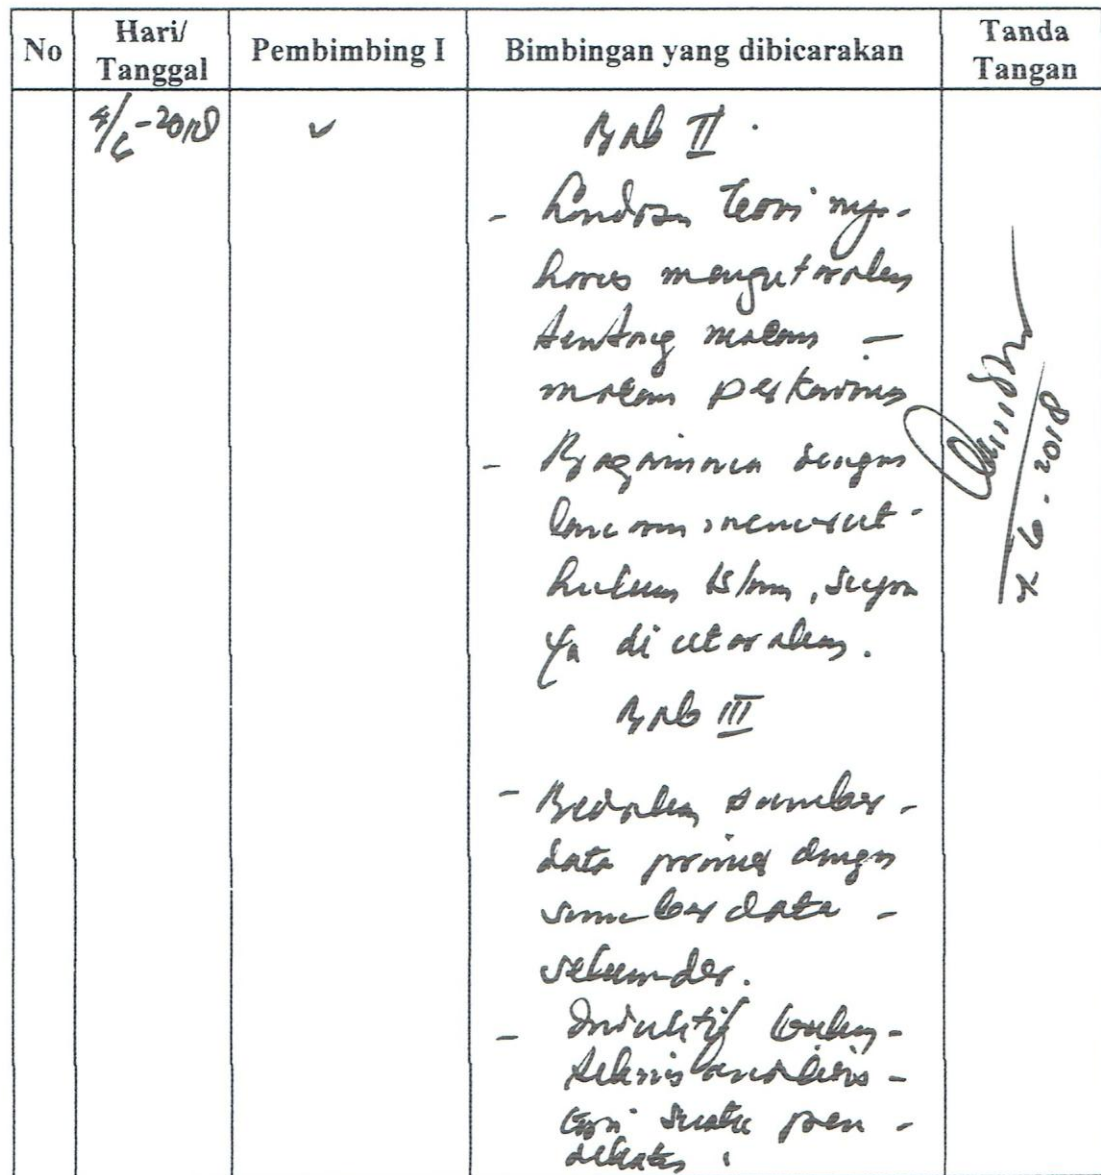 No
Hari/
Tanggal
Pembimbing I
Bimbingan yang dibicarakan
Tanda
Tangan
4/6-2018
✓
Bab II.
- Landasan teori nya-
harus mengutarakan
tentang macam -
macam perkawinan
- Bagaimana dengan
menurut-
hukum Islam, supa
ya di utarakan.
Bab III
- Bedakan sumber-
data primer dengan
sumber data -
sekunder.
- Induktif bukan-
teknis analisis-
tapi suatu pen-
dekatan.
6-2018